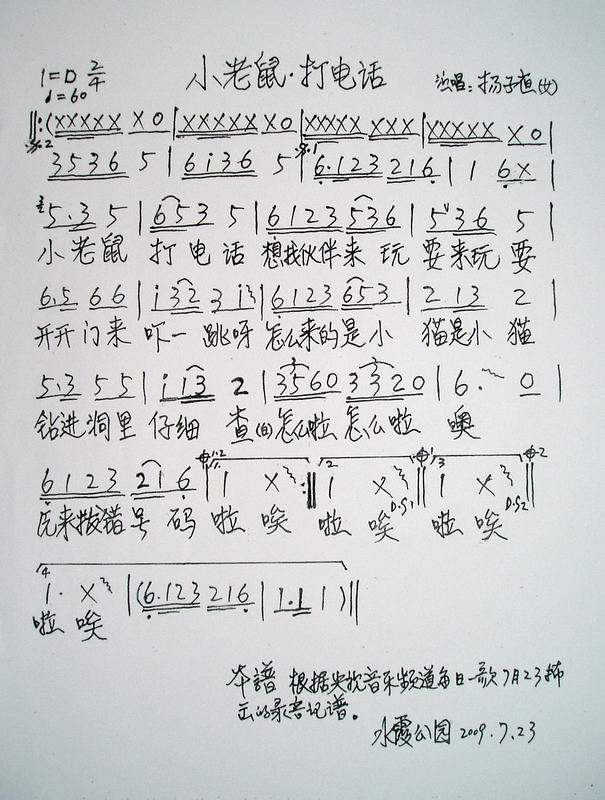 小老鼠·打电话
1=D 2/4
♩=60
演唱：杨子煊(女)
‖:(XXXXX X0|XXXXX X0|XXXXX XXX|XXXXX X0|
3536 5|6i36 5|6.123 216|1 6X|
5.3 5|653 5|6123 536|5 36 5|
小老鼠 打电话 想找伙伴来玩 耍来玩耍
6.5 66|i32 3 i3|6123 653|2 13 2|
开开门来 吓一跳呀 怎么来的是小 猫是小猫
5.3 55|i i3 2|3560 3320|6. 0|
钻进洞里 仔细查(白)怎么啦 怎么啦 噢
6123 216|1 X:‖1 X‖1 X‖
原来拨错号码啦唉 啦唉 啦唉
1. X|(6.123 216|1.1 1)‖
啦唉
本譜根据央视音乐频道每日一歌7月23播
出的录音记谱。
水霞公园 2009.7.23